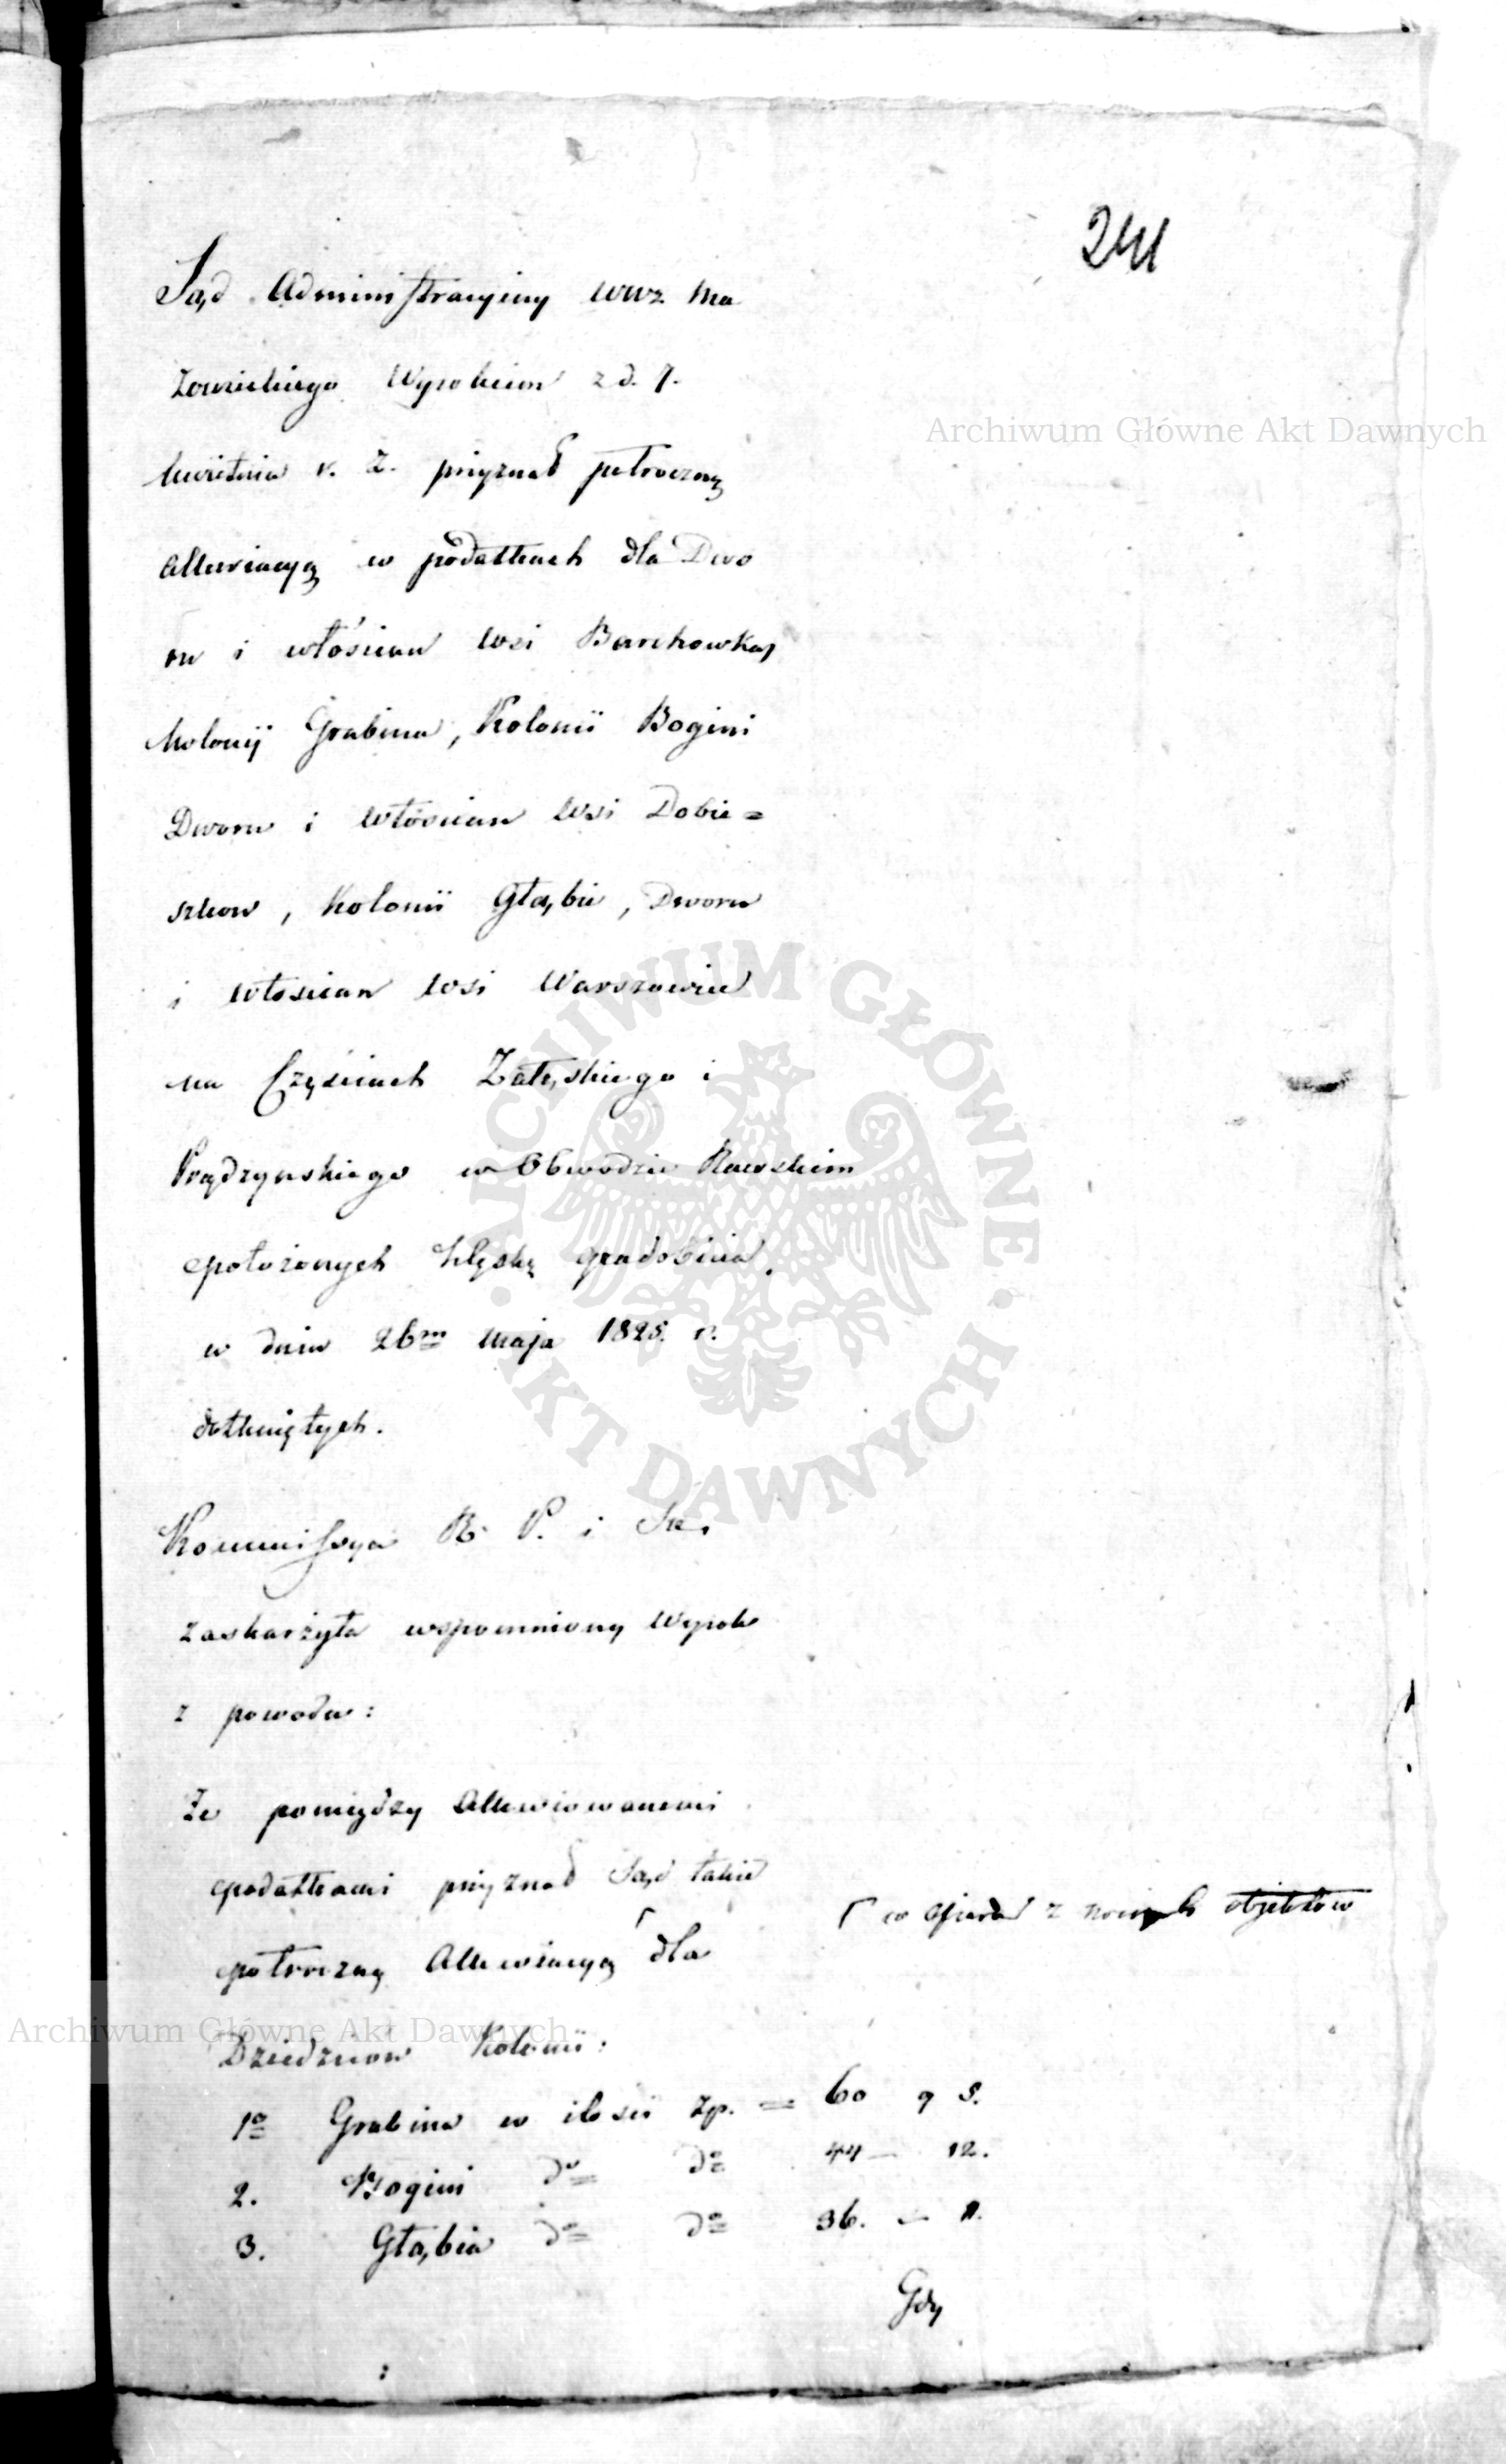 241
Sąd Administracyiny Wwz Ma
zowieckiego Wyrokiem z d. 7.
kwietnia r. z. przyznał półroczną
allewiacyą w podatkach dla Dwo
ru i włościan wsi Barchowka,
Kolonij Grabina, Kolonii Bogini
Dworu i włościan wsi Dobie=
szkow, Kolonii Głąbie, Dworu
i włoscian wsi Warszowice
na Częściach Załęskiego i
Prądzynskiego w Obwodzie Rawskim
położonych klęską gradobicia,
w dniu 26m maja 1825. r.
dotkniętych.
Kommissya R. P. i Sk.
zaskarżyła wspomniony Wyrok
z powodu:
że pomiędzy allewiowanemi
podatkami przyznał Sąd także
półroczną Allewiacyą ⌈ dla
⌈ w z objektów
Dziedziców Kolonii:
1o Grabina w ilości Zp. = 60 g 5.
2. Bogini do do 44 — 12.
3. Głąbia do do 36. —
Gdy
Archiwum Główne Akt Dawnych
ARCHIWUM GŁÓWNE AKT DAWNYCH
Archiwum Główne Akt Dawnych